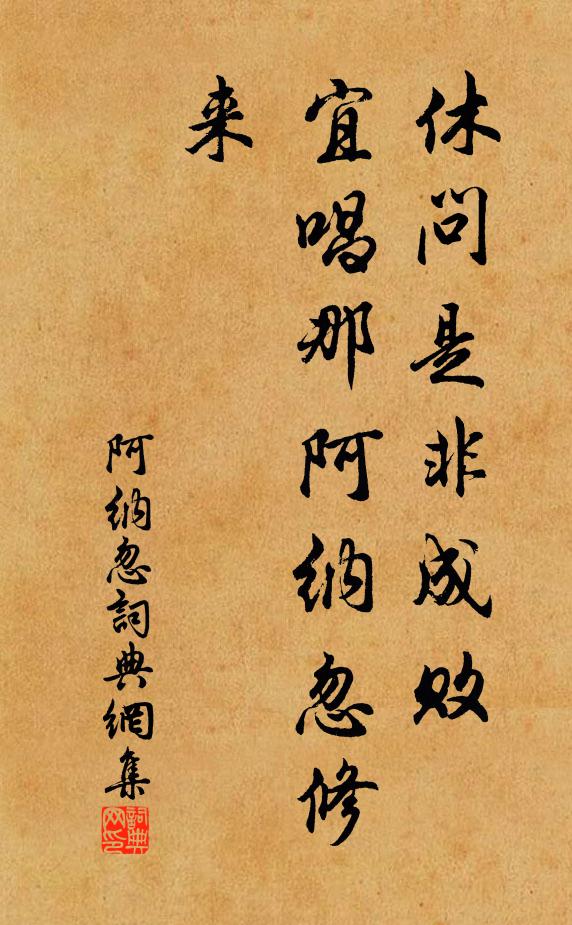 休问是非成败
宜唱那阿纳忽修
来
阿纳忽詞典網集
詞典
网印